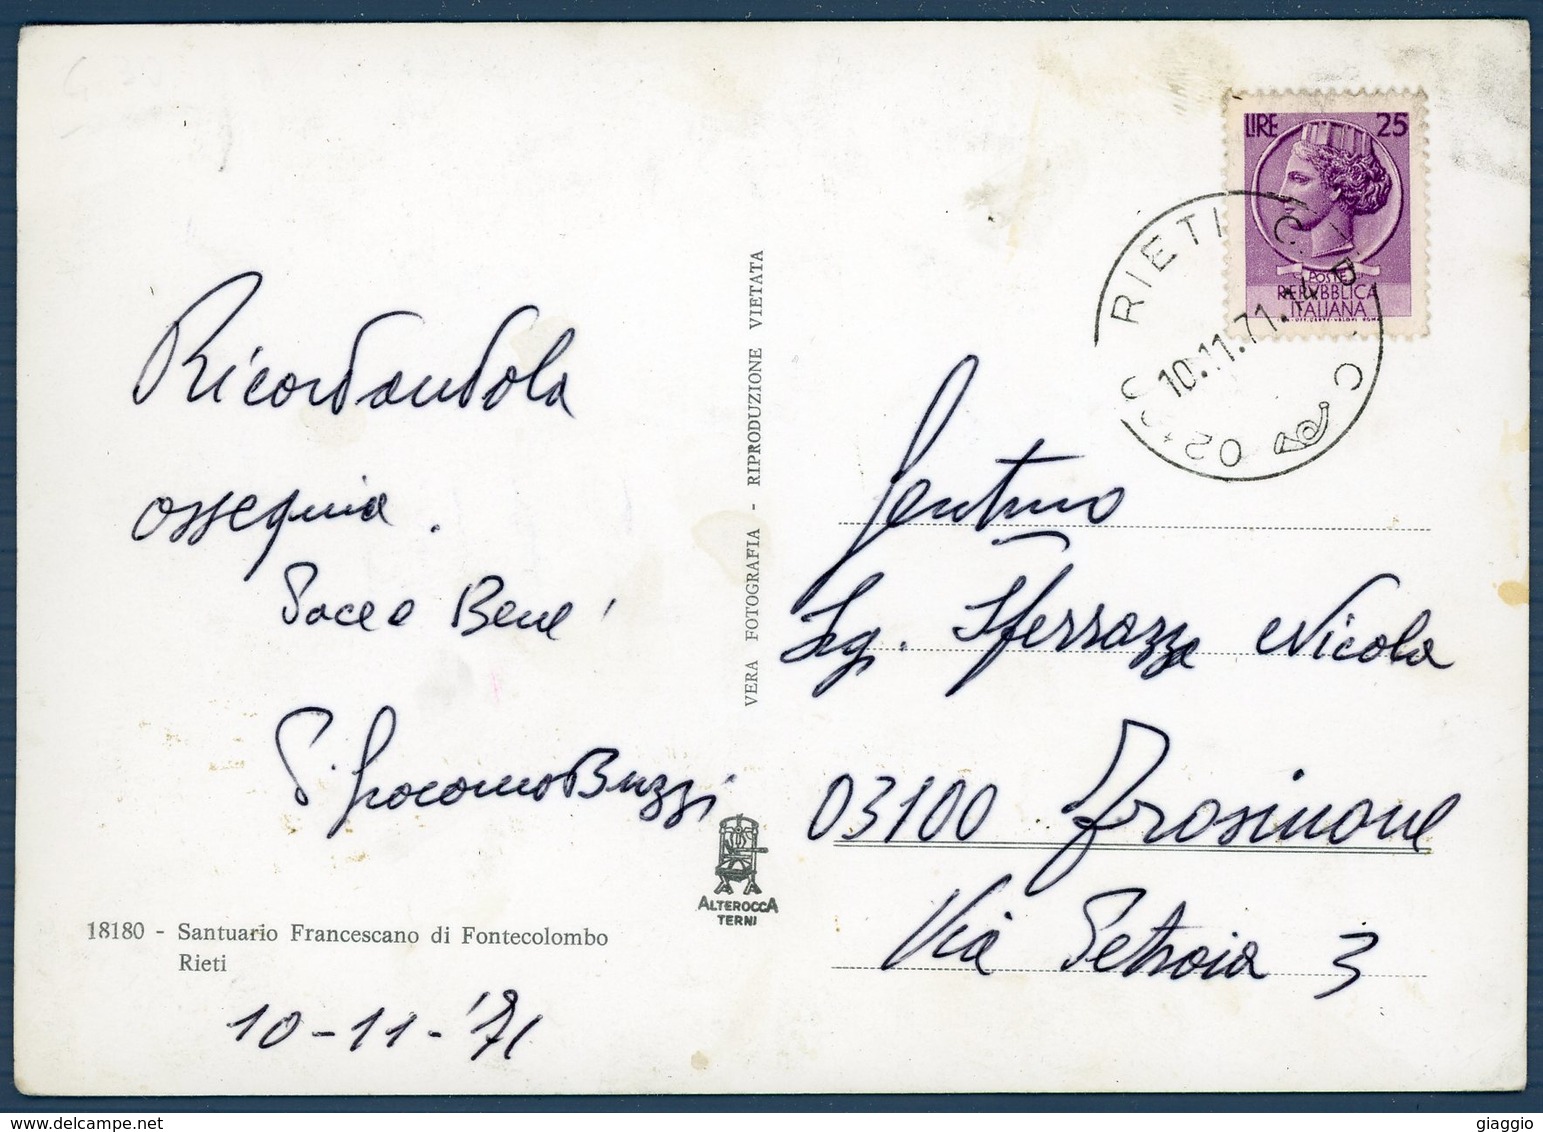 Ricordandola
ossequia.
Pace e Bene!
P. Giacomo Buzzi
18180 - Santuario Francescano di Fontecolombo
Rieti
10-11-'71
VERA FOTOGRAFIA - RIPRODUZIONE VIETATA
ALTEROCCA
TERNI
LIRE 25
POSTE
REPVBBLICA
ITALIANA
RIETI
10.11.71
Gent.mo
Sig. Sferrazza Nicola
03100 Frosinone
Via
3
giaggio